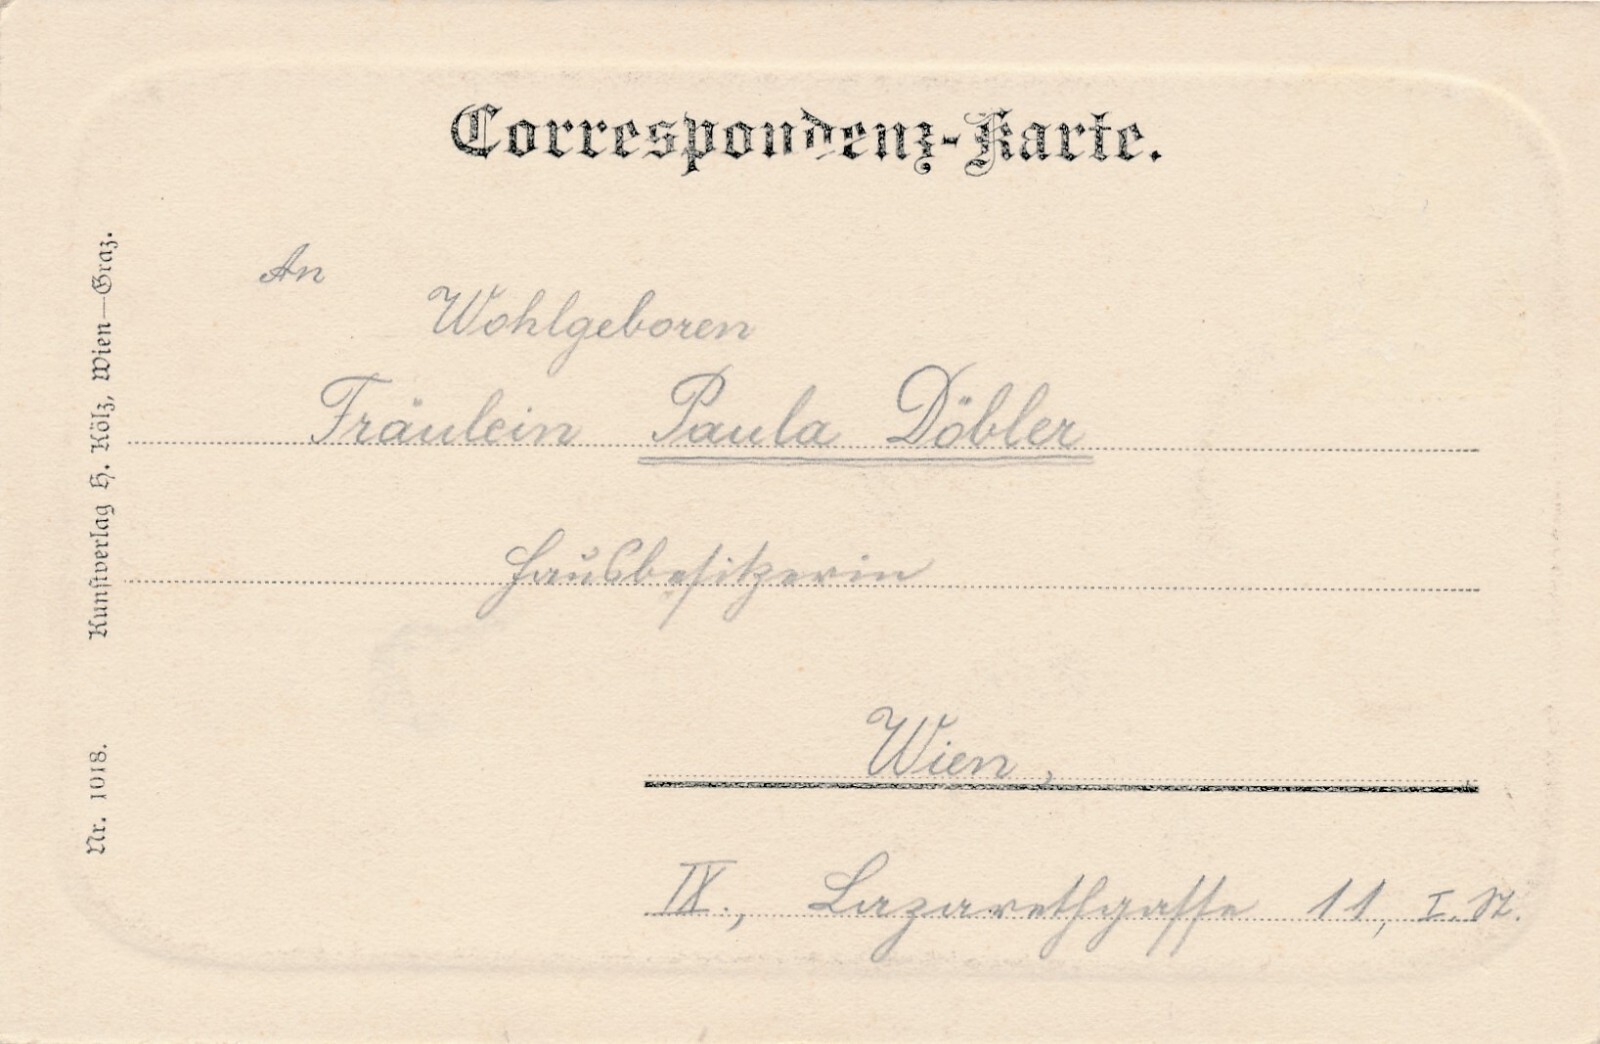 Correspondenz-Karte.
An
Wohlgeboren
Fräulein Paula Döbler
Hausbesitzerin
Wien,
IX., Lazarethgasse 11, I. St.
Nr. 1018. Kunstverlag H. Kölz, Wien—Graz.